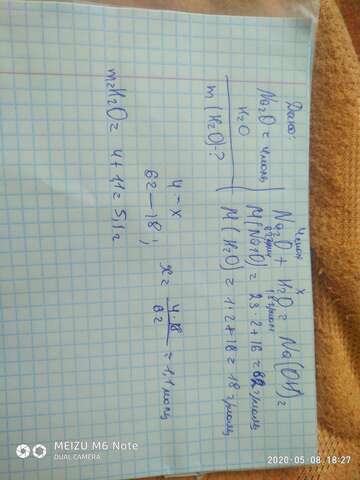 Дано:
Na₂O = 4 моль
H₂O
m(H₂O) - ?
4 моль x
Na₂O + H₂O = Na(OH)₂
62 г/моль 18 г/моль
M(Na₂O) = 23·2+16 = 62 г/моль
M(H₂O) = 1·2+18 = 18 г/моль
4 — x
62 — 18 ; x = 4·18/62 = 1,1 моль
m H₂O = 4+11 = 51г
MEIZU M6 Note
DUAL CAMERA
2020-05-08 18:27